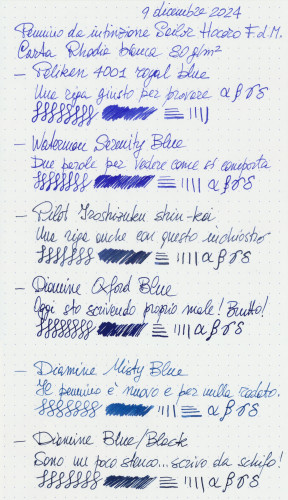 9 dicembre 2024
Pennino da intinzione Sailor Hocoro F. d. M.
Carta Rhodia bianca 80 g/m²
— Pelikan 4001 royal blue
Una riga giusto per provare α β γ δ
— Waterman Serenity Blue
Due parole per vedere come si comporta
α β γ δ
— Pilot Iroshizuku shin-kai
Una riga anche con questo inchiostro
α β γ δ
— Diamine Oxford Blue
Oggi sto scrivendo proprio male! Brutto!
α β γ δ
— Diamine Misty Blue
Il pennino è nuovo e per nulla rodato.
α β γ δ
— Diamine Blue/Black
Sono un poco stanco... scrivo da schifo!
α β γ δ